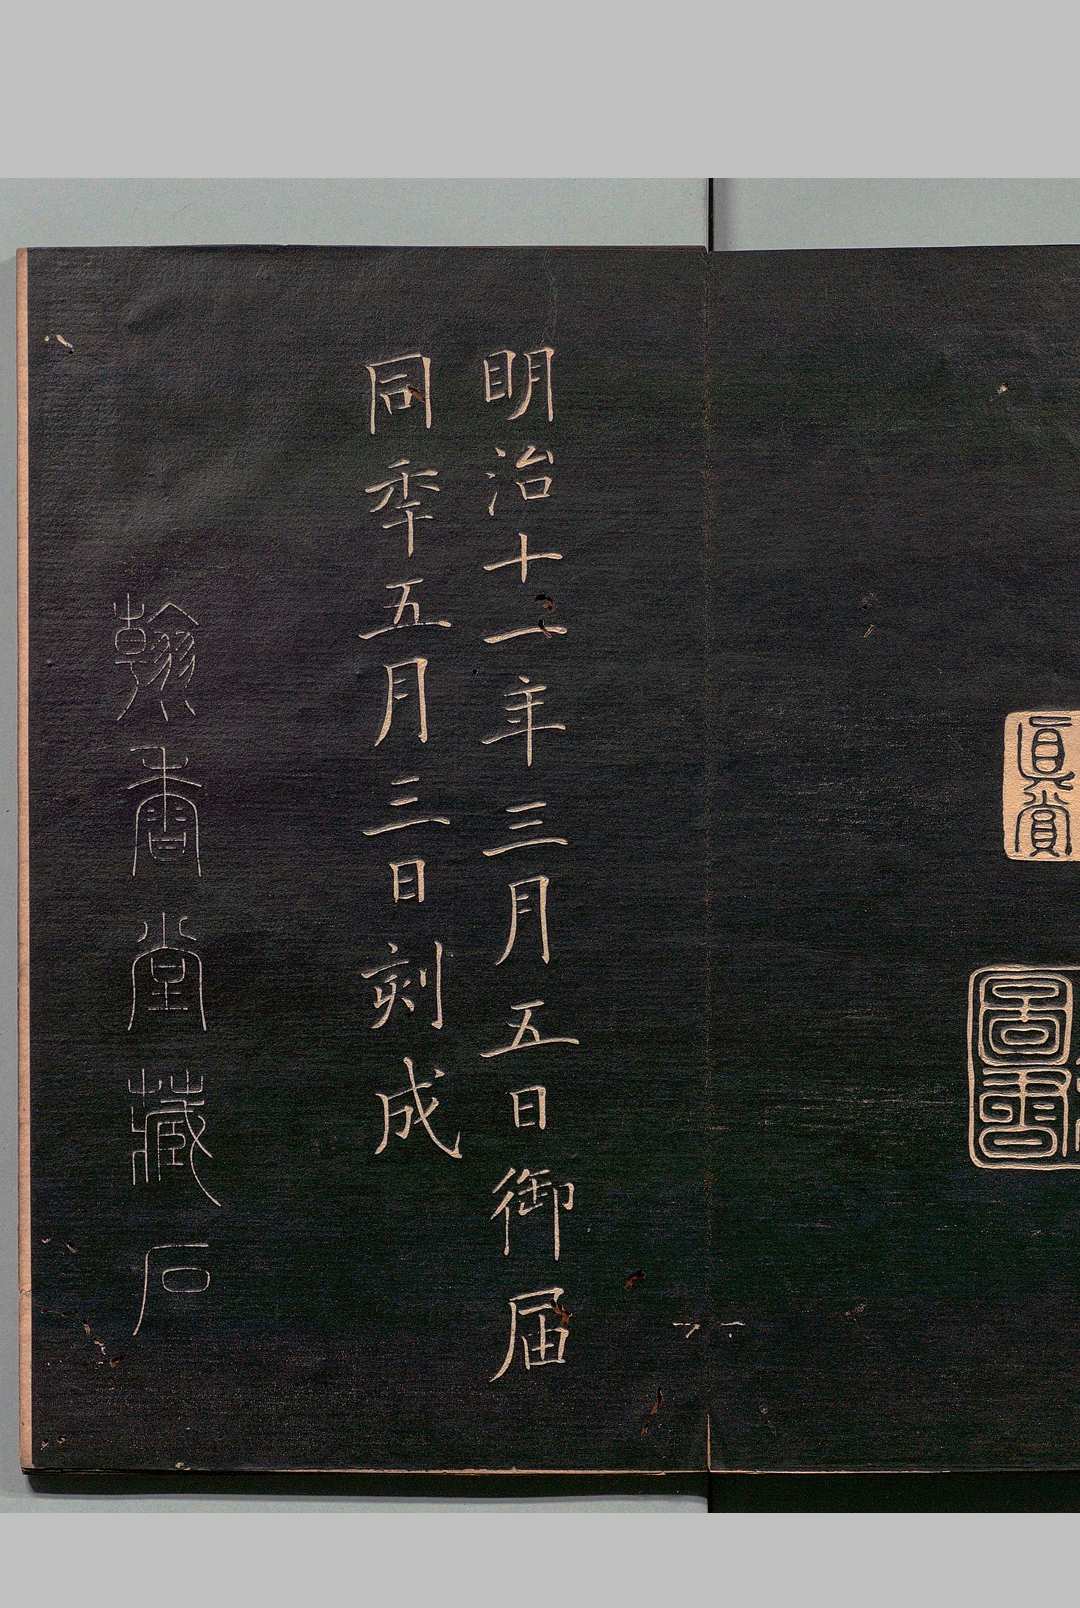 眞賞
明治十一年三月五日御届
同年五月三日刻成
翰香堂藏石